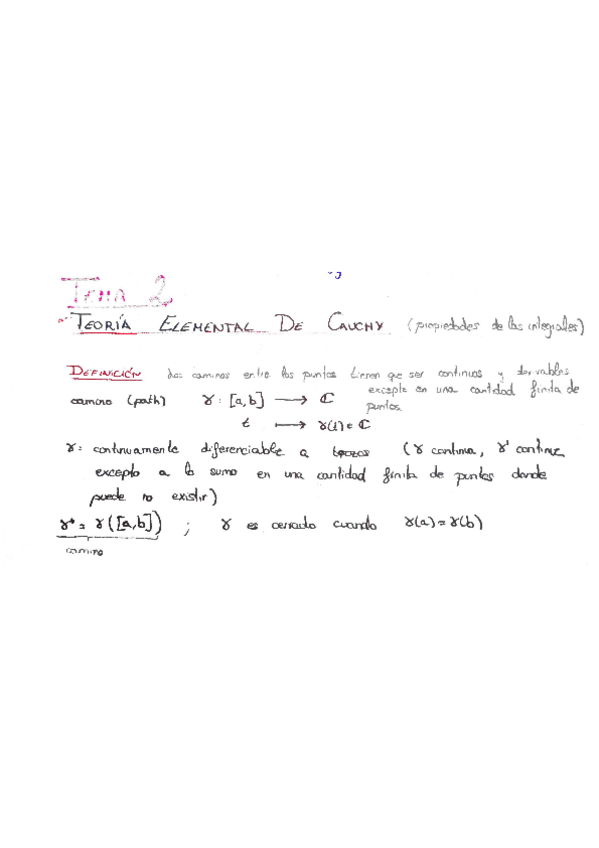 Tema 2
TEORÍA ELEMENTAL DE CAUCHY (propiedades de las integrales)
DEFINICIÓN Los caminos entre los puntos tienen que ser continuos y derivables
excepto en una cantidad finita de
puntos.
camino (path) γ: [a,b] ⟶ ℂ
t ⟼ γ(t) ∈ ℂ
γ: continuamente diferenciable a trozos (γ continua, γ' continua
excepto a lo sumo en una cantidad finita de puntos donde
puede no existir)
γ* = γ([a,b]) ; γ es cerrado cuando γ(a)=γ(b)
camino